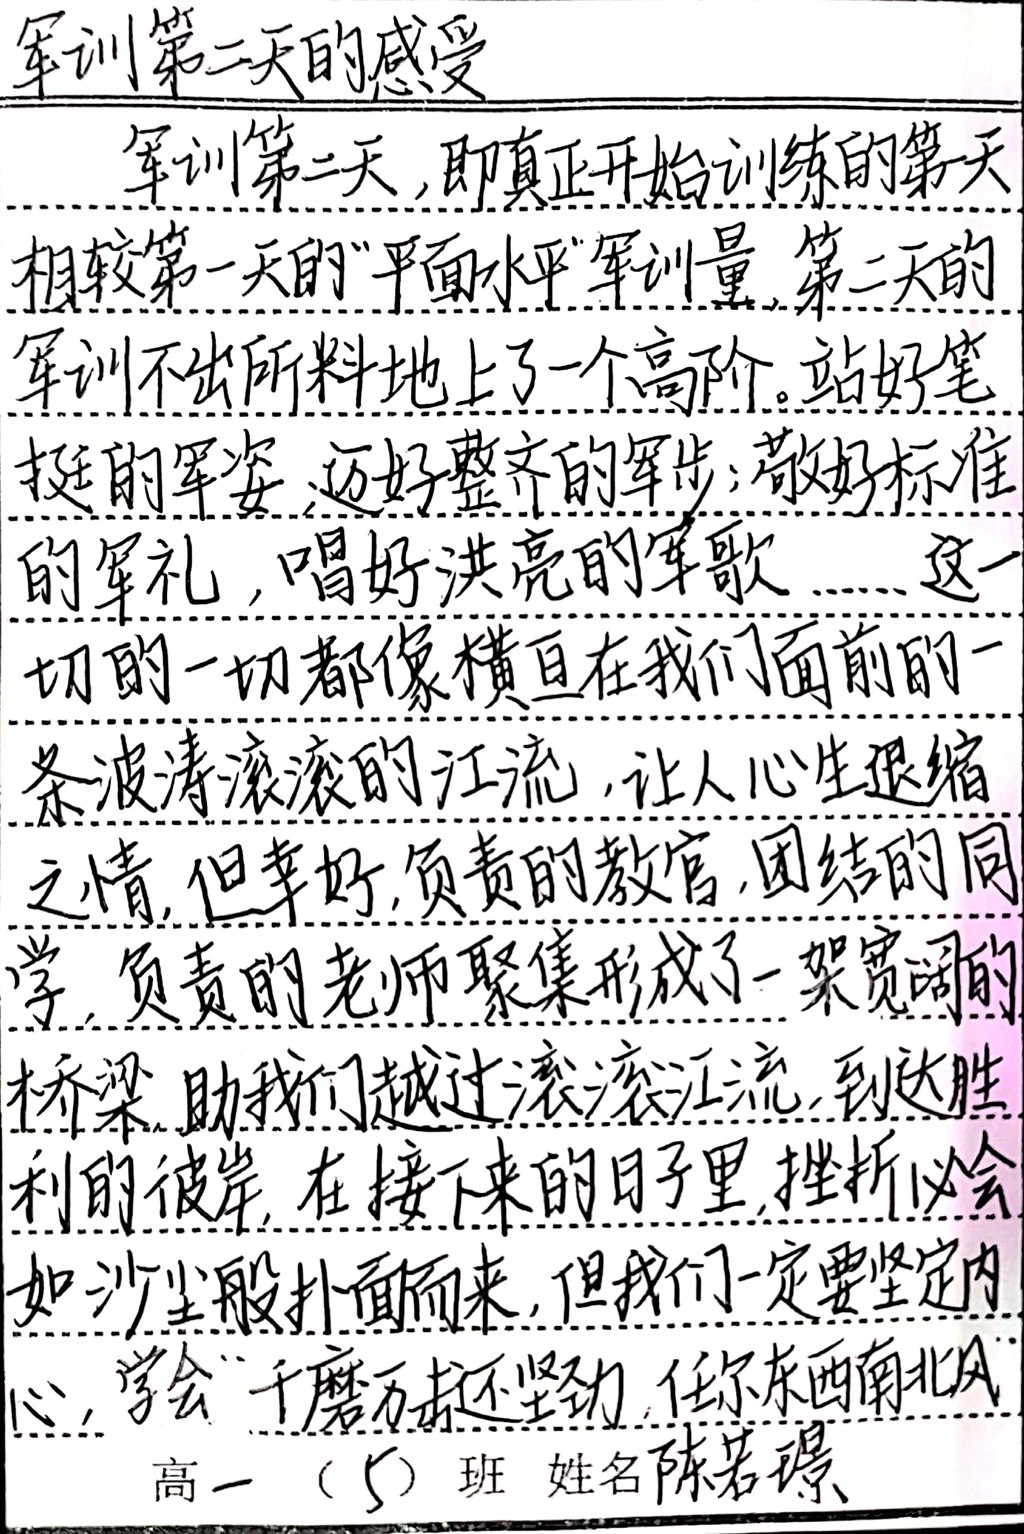 军训第二天的感受
军训第二天,即真正开始训练的第一天
相较第一天的“平面水平”军训量,第二天的
军训不出所料地上了一个高阶。站好笔
挺的军姿,迈好整齐的军步;敬好标准
的军礼,唱好洪亮的军歌……这一
切的一切都像横亘在我们面前的一
条波涛滚滚的江流,让人心生退缩
之情,但幸好,负责的教官,团结的同
学,负责的老师聚集形成了一架宽阔的
桥梁,助我们越过滚滚江流,到达胜
利的彼岸,在接下来的日子里,挫折必会
如沙尘般扑面而来,但我们一定要坚定内
心,学会“千磨万击还坚劲,任尔东西南北风”
高一(5)班 姓名陈若璟